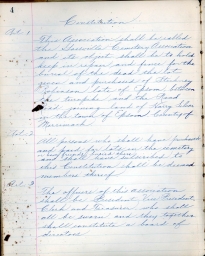 4
Constitution
Art. 1
This Association shall be called
the Cemetery Association
and its object shall be to hold
keep in repair and fence for the
burial of the dead the lot
given for that purpose by
Johnson late of between
the turnpike and
land of
in the town of County of
Art. 2
All persons who shall have purchased
and paid for lots in the cemetery
and shall have subscribed to
this Constitution shall be deemed
members thereof.
Art. 3
The officers of this association
shall be President Vice President
Clerk and Treasurer who shall
all be sworn and they together
shall constitute a board of
directors.